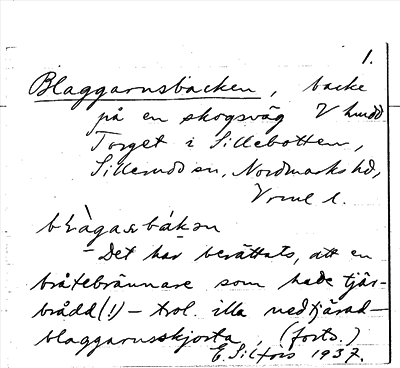 1.
Blaggarnsbacken, backe
på en skogsväg V
Torget i Sillebotten,
Sillerud sn, Nordmarks hd,
Vrml l.
blàgasbákən
Det har berättats, att en
bråtebrännare som hade tjär-
brådd (!) - trol. illa nedtjärad -
blaggarnsskjorta, (forts.)
E. Silfors 1937.